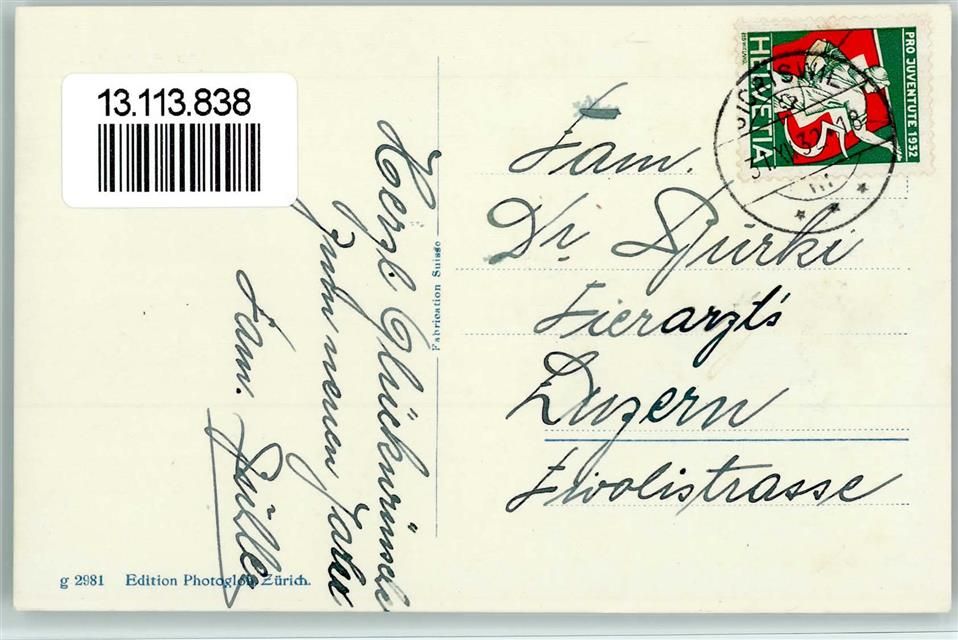 13.113.838
PRO JUVENTUTE 1932
HELVETIA
Herzl. Glückwünsche
zum neuen Jahr
Fam.
Fabrication Suisse
Fam.
Dr. Spürki
Tierarzt's
Luzern
Tivolistrasse
g 2981 Edition Photoglob Zürich.